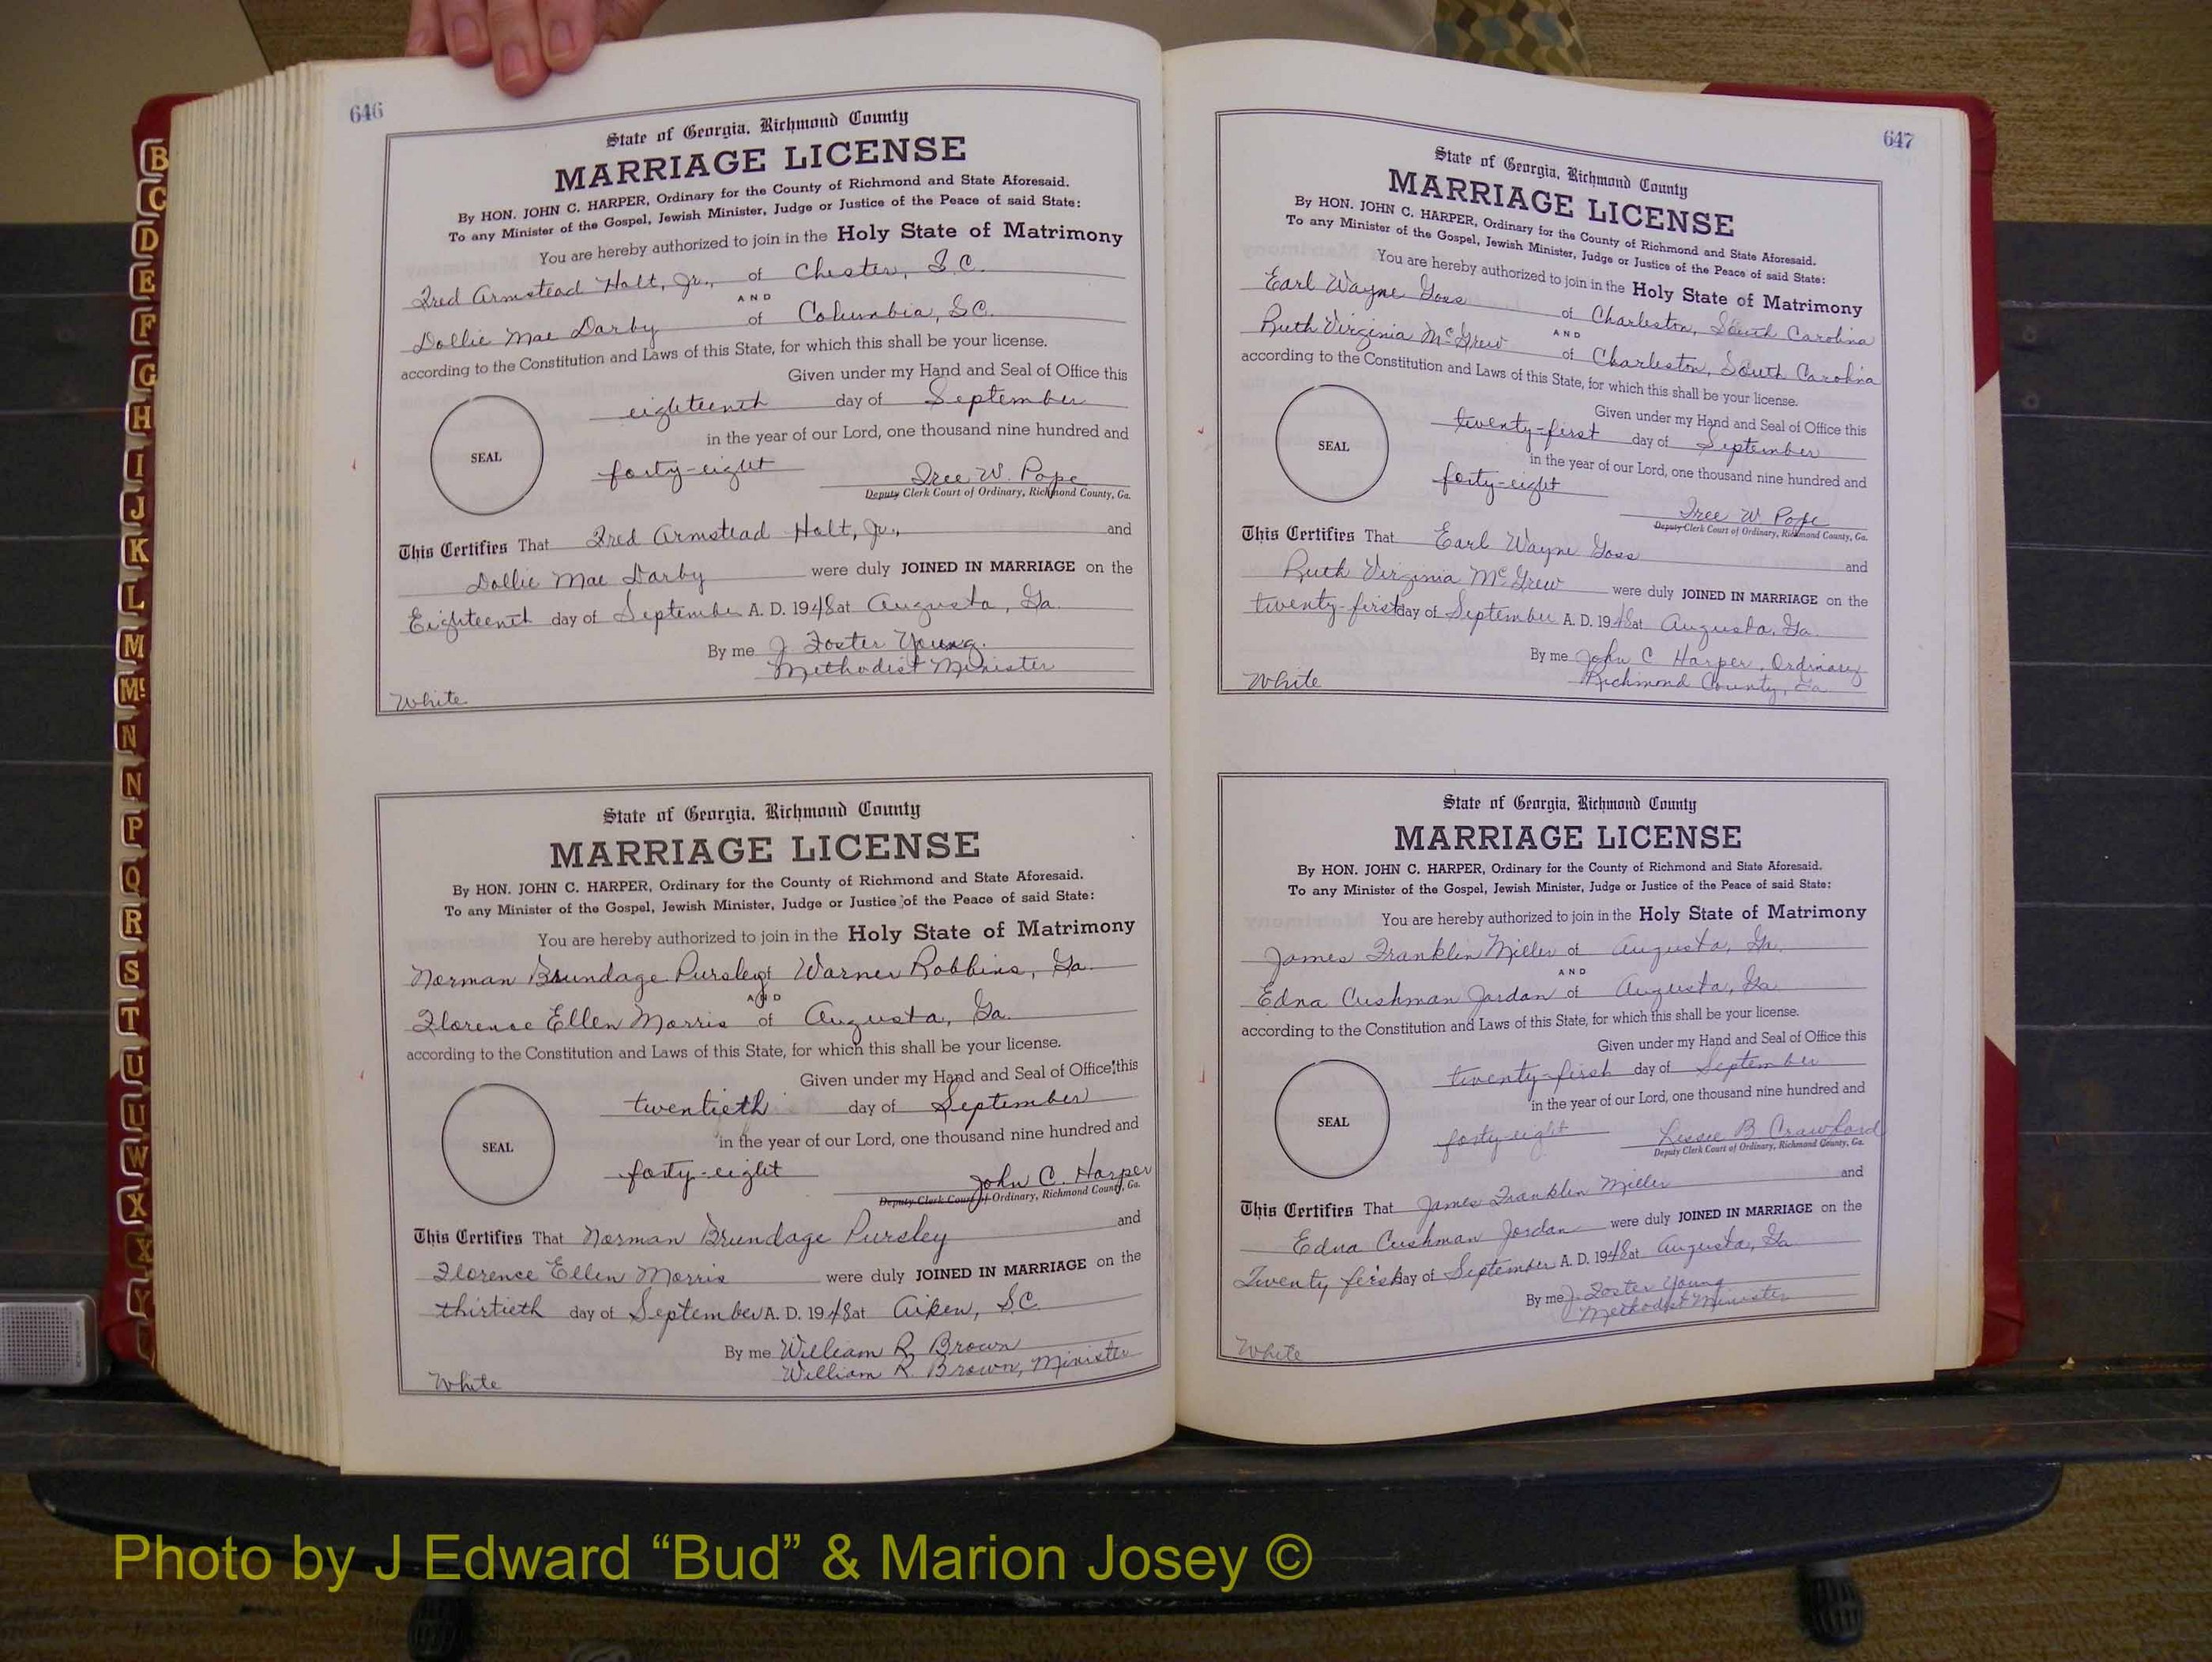 646
State of Georgia, Richmond County
MARRIAGE LICENSE
By HON. JOHN C. HARPER, Ordinary for the County of Richmond and State Aforesaid.
To any Minister of the Gospel, Jewish Minister, Judge or Justice of the Peace of said State:
You are hereby authorized to join in the Holy State of Matrimony
Fred Armstead Holt, Jr., of Chester, S.C.
AND
Dollie Mae Darby of Columbia, S.C.
according to the Constitution and Laws of this State, for which this shall be your license.
Given under my Hand and Seal of Office this
eighteenth day of September
in the year of our Lord, one thousand nine hundred and
SEAL
forty-eight Iree W. Pope
Deputy Clerk Court of Ordinary, Richmond County, Ga.
This Certifies That Fred Armstead Holt, Jr., and
Dollie Mae Darby were duly JOINED IN MARRIAGE on the
Eighteenth day of September A. D. 1948 at Augusta, Ga.
By me J. Foster Young.
Methodist Minister
White
State of Georgia, Richmond County
MARRIAGE LICENSE
By HON. JOHN C. HARPER, Ordinary for the County of Richmond and State Aforesaid.
To any Minister of the Gospel, Jewish Minister, Judge or Justice of the Peace of said State:
You are hereby authorized to join in the Holy State of Matrimony
Norman Brundage Pursley of Warner Robbins, Ga.
AND
Florence Ellen Morris of Augusta, Ga.
according to the Constitution and Laws of this State, for which this shall be your license.
Given under my Hand and Seal of Office this
twentieth day of September
in the year of our Lord, one thousand nine hundred and
SEAL
forty-eight John C. Harper
Deputy Clerk Court of Ordinary, Richmond County, Ga.
This Certifies That Norman Brundage Pursley and
Florence Ellen Morris were duly JOINED IN MARRIAGE on the
thirtieth day of September A. D. 1948 at Aiken, S.C.
By me William R. Brown
William R. Brown, Minister
White
647
State of Georgia, Richmond County
MARRIAGE LICENSE
By HON. JOHN C. HARPER, Ordinary for the County of Richmond and State Aforesaid.
To any Minister of the Gospel, Jewish Minister, Judge or Justice of the Peace of said State:
You are hereby authorized to join in the Holy State of Matrimony
Earl Wayne Goss of Charleston, South Carolina
AND
Ruth Virginia McGrew of Charleston, South Carolina
according to the Constitution and Laws of this State, for which this shall be your license.
Given under my Hand and Seal of Office this
twenty-first day of September
in the year of our Lord, one thousand nine hundred and
SEAL
forty-eight Iree W. Pope
Deputy Clerk Court of Ordinary, Richmond County, Ga.
This Certifies That Earl Wayne Goss and
Ruth Virginia McGrew were duly JOINED IN MARRIAGE on the
twenty-first day of September A. D. 1948 at Augusta, Ga.
By me John C Harper, Ordinary
Richmond County, Ga.
White
State of Georgia, Richmond County
MARRIAGE LICENSE
By HON. JOHN C. HARPER, Ordinary for the County of Richmond and State Aforesaid.
To any Minister of the Gospel, Jewish Minister, Judge or Justice of the Peace of said State:
You are hereby authorized to join in the Holy State of Matrimony
James Franklin Miller of Augusta, Ga.
AND
Edna Cushman Jordan of Augusta, Ga.
according to the Constitution and Laws of this State, for which this shall be your license.
Given under my Hand and Seal of Office this
twenty-first day of September
in the year of our Lord, one thousand nine hundred and
SEAL
forty-eight Lessie B Crawford
Deputy Clerk Court of Ordinary, Richmond County, Ga.
This Certifies That James Franklin Miller and
Edna Cushman Jordan were duly JOINED IN MARRIAGE on the
Twenty first day of September A. D. 1948 at Augusta, Ga
By me J. Foster Young
Methodist Minister
White
B
C
D
E
F
G
H
I
J
K
L
M
Mc
N
N
P
Q
R
S
T
U
U
W
X
X
Y
Photo by J Edward “Bud” & Marion Josey ©